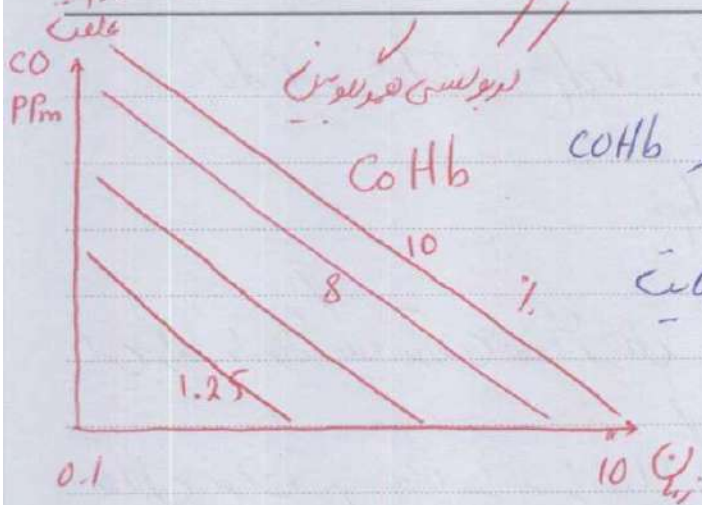 غلظت
CO
PPm
کربوکسی هموگلوبین
CoHb
COHb
10
8
%
1.25
0.1
10
زمان